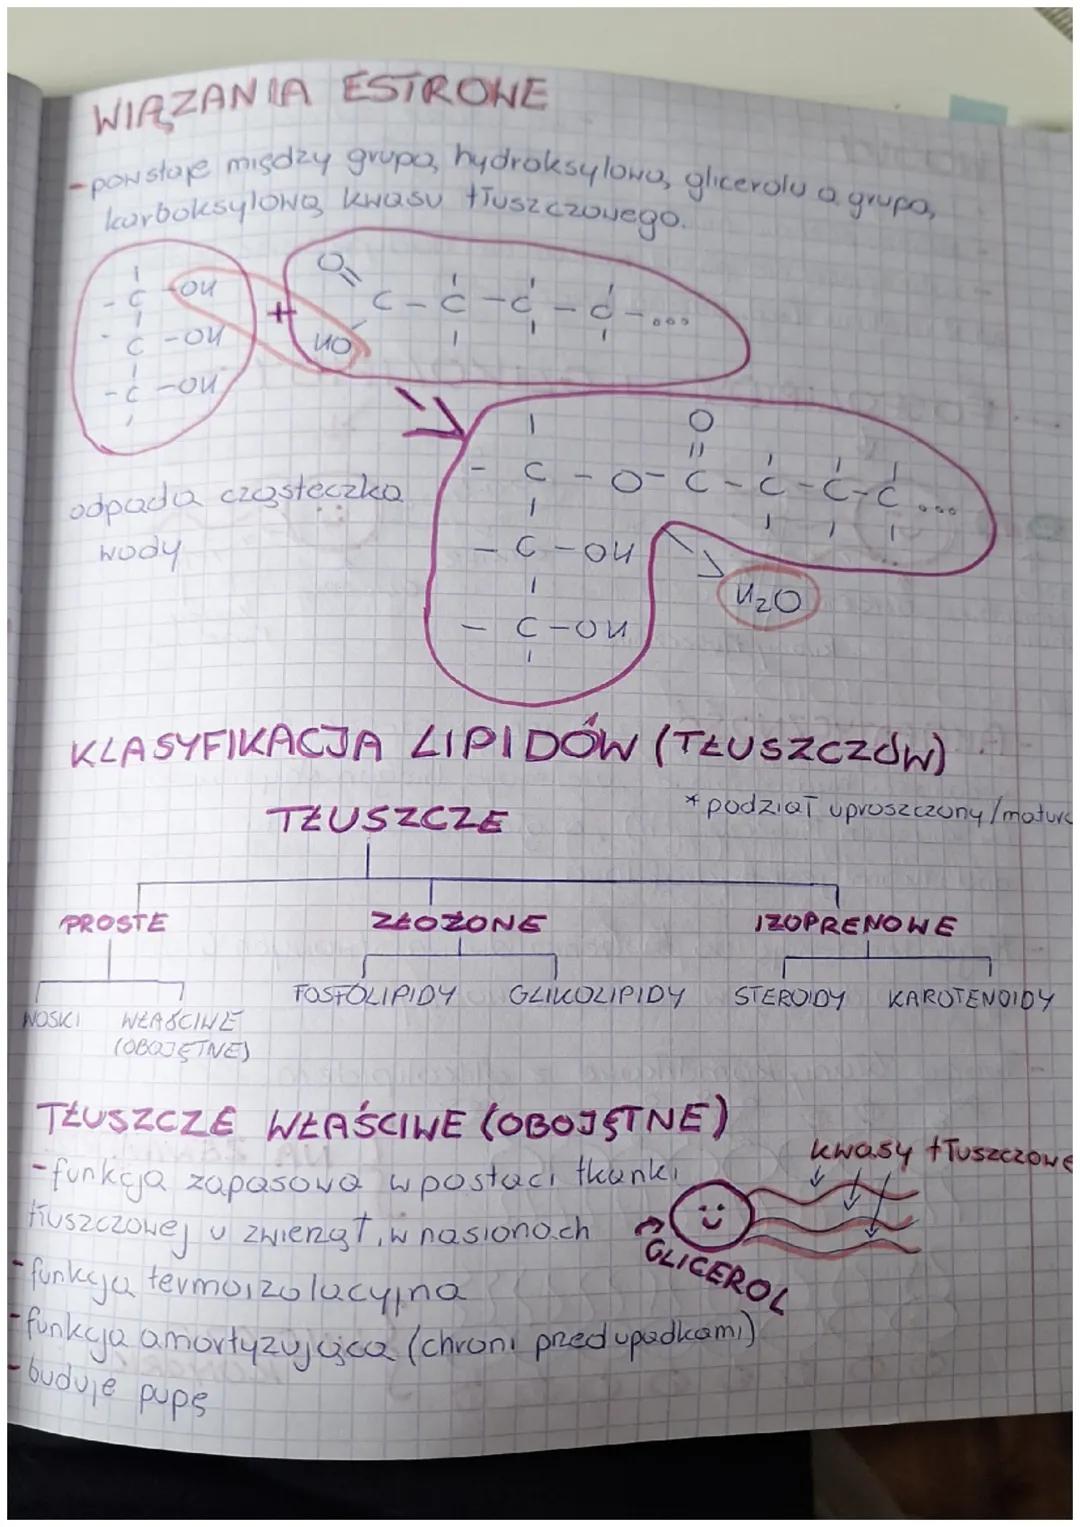 WIĄZANIA ESTROWE
- powstaje między grupą hydroksylową glicerolu a grupą
karboksylową kwasu tłuszczowego.
- C - OH
- C - OH
- C - OH
+
O
HO
C - C - C - C - ...
odpada cząsteczka
wody
O
- C - O - C - C - C - C ...
- C - OH
- C - OH
H₂O
KLASYFIKACJA LIPIDÓW (TŁUSZCZÓW)
* podział uproszczony/matura
TŁUSZCZE
PROSTE ZŁOŻONE IZOPRENOWE
WOSKI WŁAŚCIWE FOSFOLIPIDY GLIKOLIPIDY STEROIDY KAROTENOIDY
(OBOJĘTNE)
TŁUSZCZE WŁAŚCIWE (OBOJĘTNE)
kwasy tłuszczowe
- funkcja zapasowa w postaci tkanki
tłuszczowej u zwierząt, w nasionach
GLICEROL
- funkcja termoizolacyjna
- funkcja amortyzująca (chroni przed upadkami)
- buduje pupę